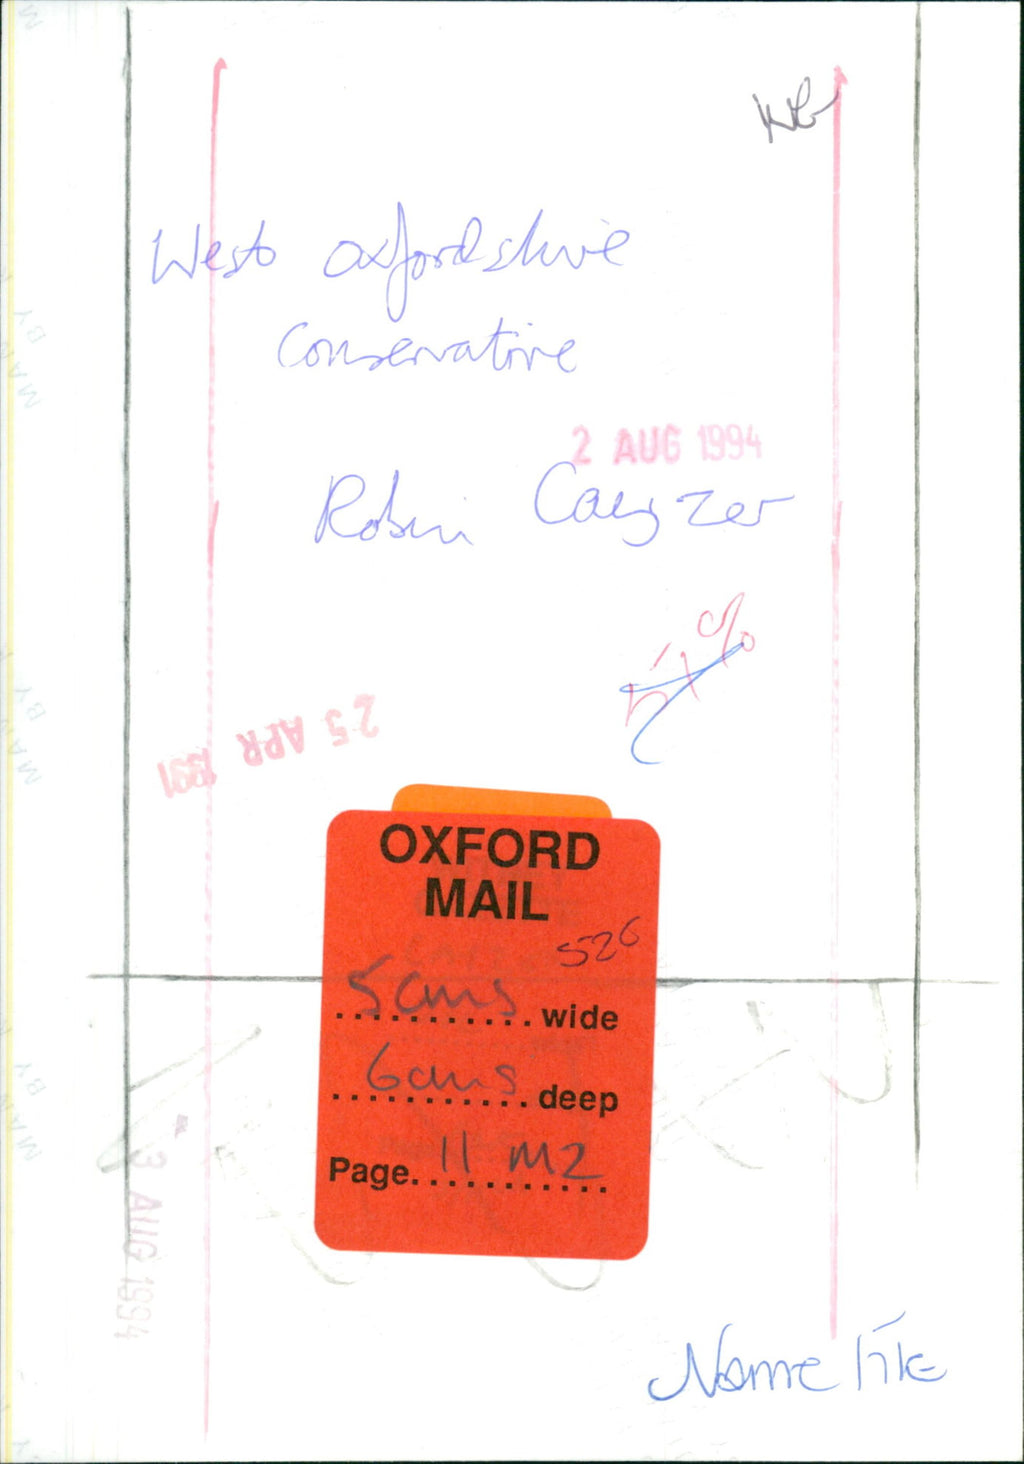 West Oxfordshire
Conservative
2 AUG 1994
Robin Cayzer
51%
25 APR 1991
OXFORD
MAIL
526
5cms wide
6cms deep
Page 11 M2
3 AUG 1994
Name File